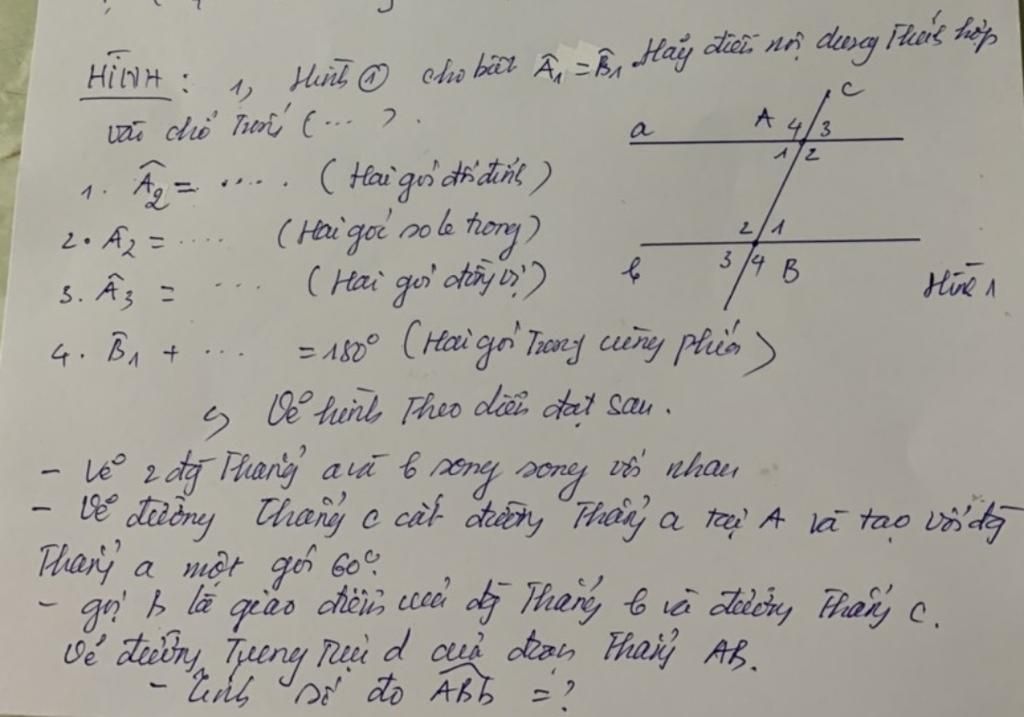 HÌNH : 1, Hình ① cho biết Â1 = B̂1. Hãy điền nội dung Thích hợp
vào chỗ Trống (... ).
a A 4 3 C
1 2
1. Â2 = ..... ( Hai góc đối đỉnh )
2. Â2 = .... (Hai góc so le trong)
2 1
b 3 4 B Hình 1
3. Â3 = ... ( Hai góc đồng vị )
4. B̂1 + ... = 180° (Hai góc Trong cùng phía)
Vẽ hình Theo diễn đạt sau.
- Vẽ 2 đg Thẳng a và b song song với nhau
- Vẽ đường Thẳng c cắt đường Thẳng a tại A và tạo với đg
Thẳng a một góc 60°.
- gọi B là giao điểm của đg Thẳng b và đường Thẳng c.
Vẽ đường Trung Trực d của đoạn Thẳng AB.
- Tính số đo ABb = ?